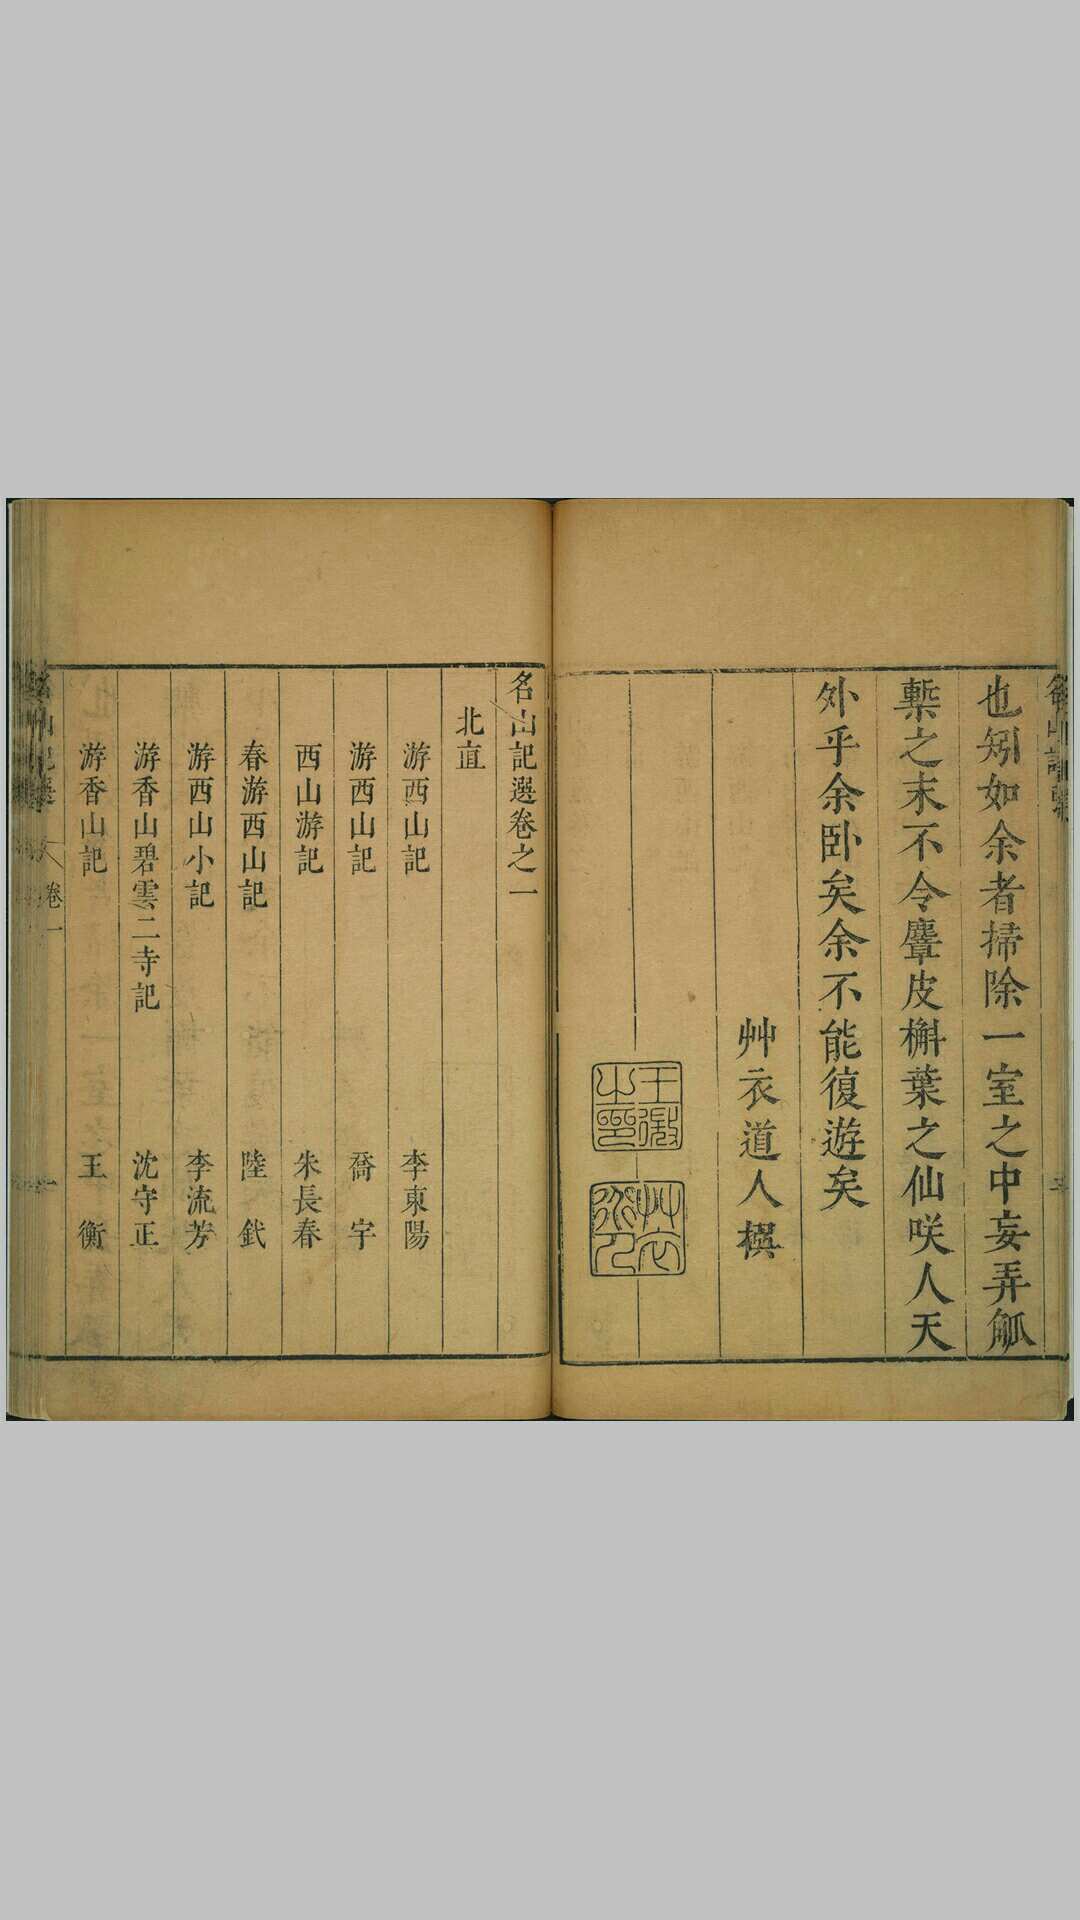 也矧如余者掃除一室之中妄弄觚
槧之末不令麞皮槲葉之仙咲人天
外乎余卧矣余不能復遊矣
艸衣道人撰
王微之印
艸衣道人
名山記選卷之一
北直
游西山記 李東陽
游西山記 喬宇
西山游記 朱長春
春游西山記 陸釴
游西山小記 李流芳
游香山碧雲二寺記 沈守正
游香山記 王衡
名山記選 卷一 一